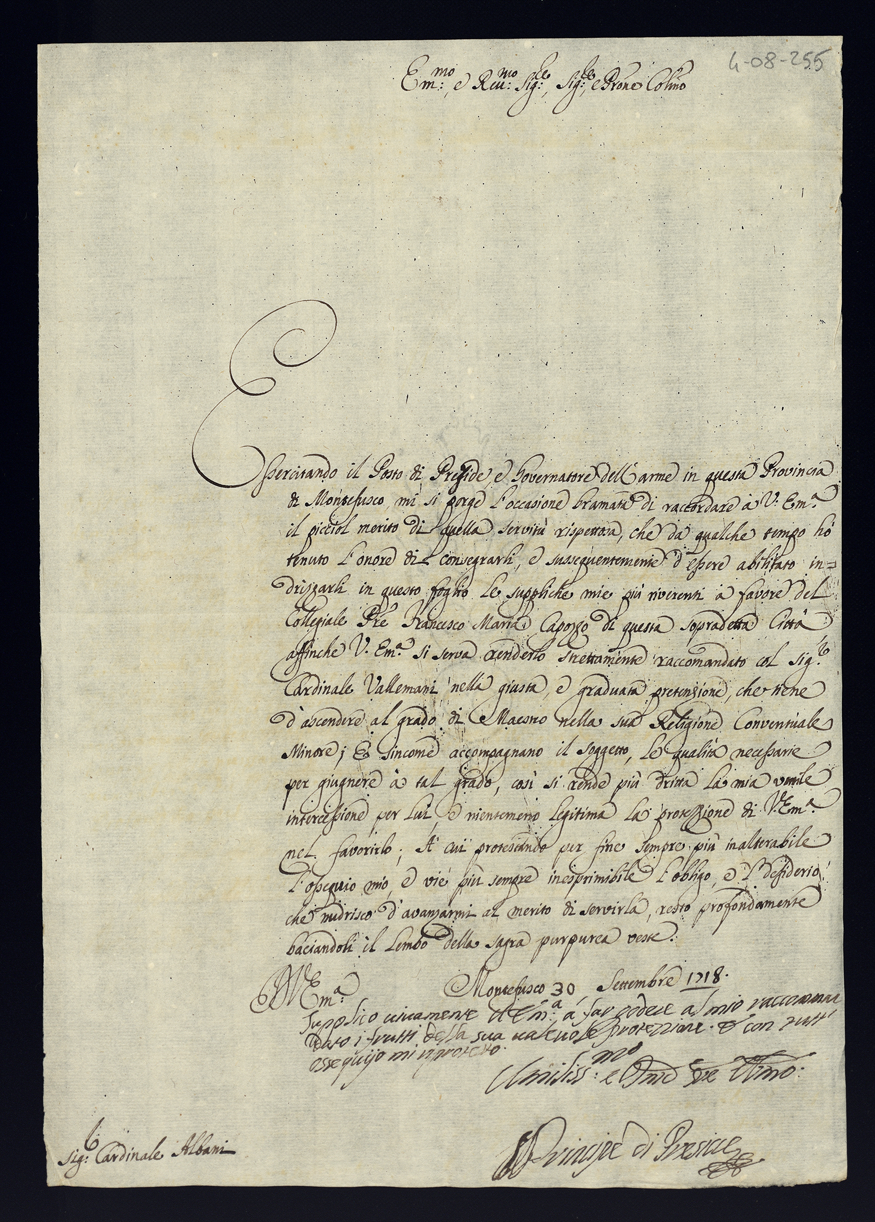 4-08-255
Em.mo e Rev.mo Sig.re, Sig.re e Prone Colmo
Essercitando il Posto di Preside e Governatore dell'arme in questa Provincia
di Montefusco, mi si porge l'occasione bramata di raccordare à V. Em.a
il picciol merito di quella servitù rispettosa, che da qualche tempo hò
tenuto l'onore di consegrarli, e susseguentemente d'essere abilitato in=
drizzarli in questo foglio le suppliche mie più riverenti a favore del
Collegiale Pre Francesco Maria Capozzo di questa sopradetta Città
affinche V. Em.a si serva renderlo strettamente raccomandato col Sig.re
Cardinale Vallemani nella giusta, e graduata pretenzione, che tiene
d'ascendere al grado di Maestro nella sua Religione Conventuale
Minore; E sincome accompagnano il soggetto, le qualità necessarie
per giugnere à tal grado, così si rende più dritta la mia umile
intercessione per lui, e nientemeno legitima la protezzione di V. Em.a
nel favorirlo; A cui protestando per fine sempre più inalterabile
l'ossequio mio, e vie più sempre inesprimibile l'obligo, e 'l desiderio,
che nudrisco d'avanzarmi al merito di servirla, resto profondamente
baciandoli il Lembo della sagra purpurea veste.
Montefusco 30 Settembre 1718.
D V Em.a
Supplico vivamente V. Em.a à far godere al mio raccoman
dato i frutti della sua valevole protezzione. E con tutt
ossequijo mi riprotesto.
Umiliss.mo e
Il Principe di Presicce
Sig.re Cardinale Albani